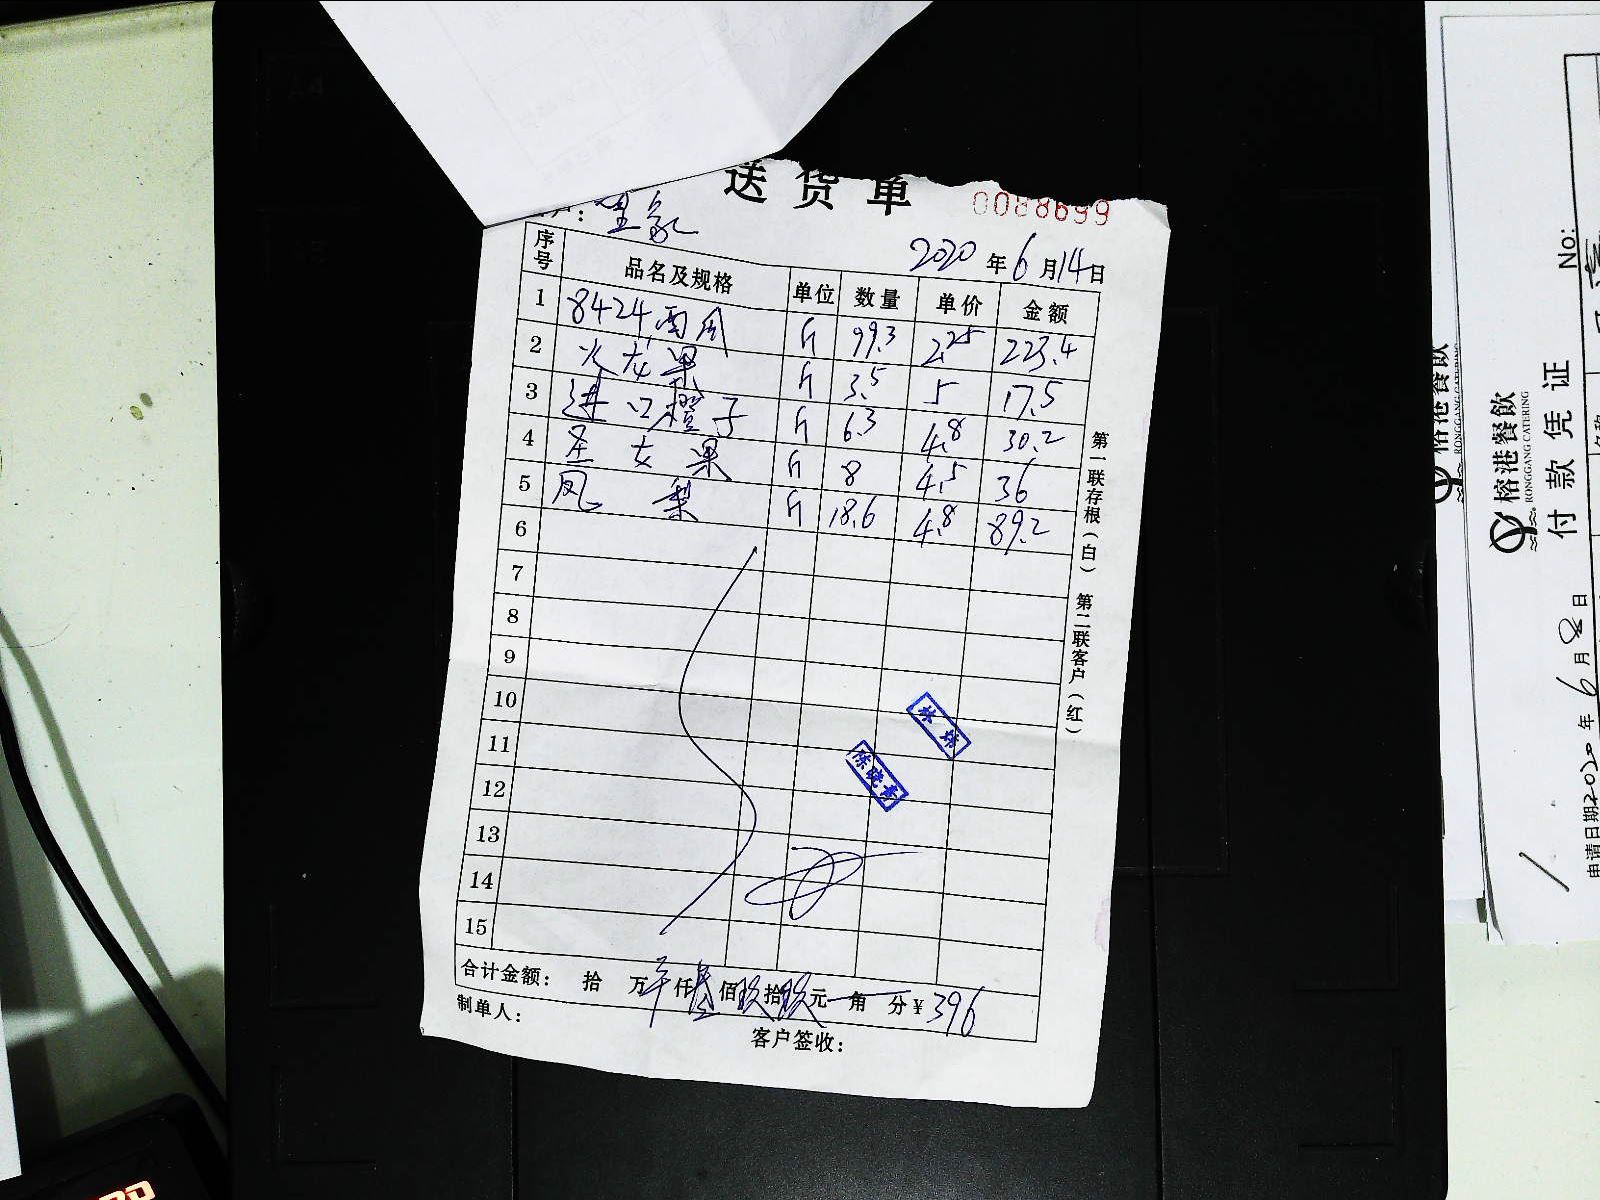 送货单
0088699
户：里象
2020年6月14日
序号 品名及规格 单位 数量 单价 金额
1 8424西瓜 斤 99.3 2.25 223.4
2 火龙果 斤 3.5 5 17.5
3 进口橙子 斤 6.3 4.8 30.2
4 圣女果 斤 8 4.5 36
5 凤梨 斤 18.6 4.8 89.2
6
7
8
9
10
11
12
13
14
15
第一联存根（白） 第二联客户（红）
林
陈晓青
合计金额： 拾 万 仟 佰玖拾 元 角 分￥396
制单人：
客户签收：
榕港餐飲
RONGGANG CATERING
榕港餐飲
RONGGANG CATERING
付款凭证
No:
申请日期2020年6月8日